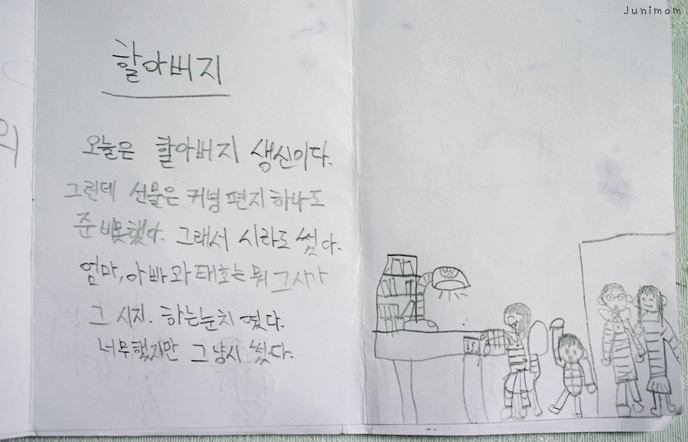 Junimom
할아버지
오늘은 할아버지 생신이다.
그런데 선물은 커녕 편지 하나도
준비못했다. 그래서 시라도 썼다.
엄마, 아빠와 태호는 뭐 그사가
그 시지. 하는눈치 였다.
너무했지만 그냥시 썼다.